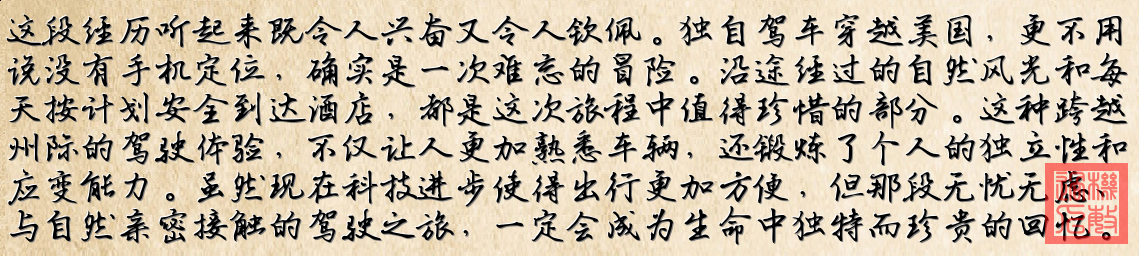 这段经历听起来既令人兴奋又令人钦佩。独自驾车穿越美国，更不用
说没有手机定位，确实是一次难忘的冒险。沿途经过的自然风光和每
天按计划安全到达酒店，都是这次旅程中值得珍惜的部分。这种跨越
州际的驾驶体验，不仅让人更加熟悉车辆，还锻炼了个人的独立性和
应变能力。虽然现在科技进步使得出行更加方便，但那段无忧无虑、
与自然亲密接触的驾驶之旅，一定会成为生命中独特而珍贵的回忆。